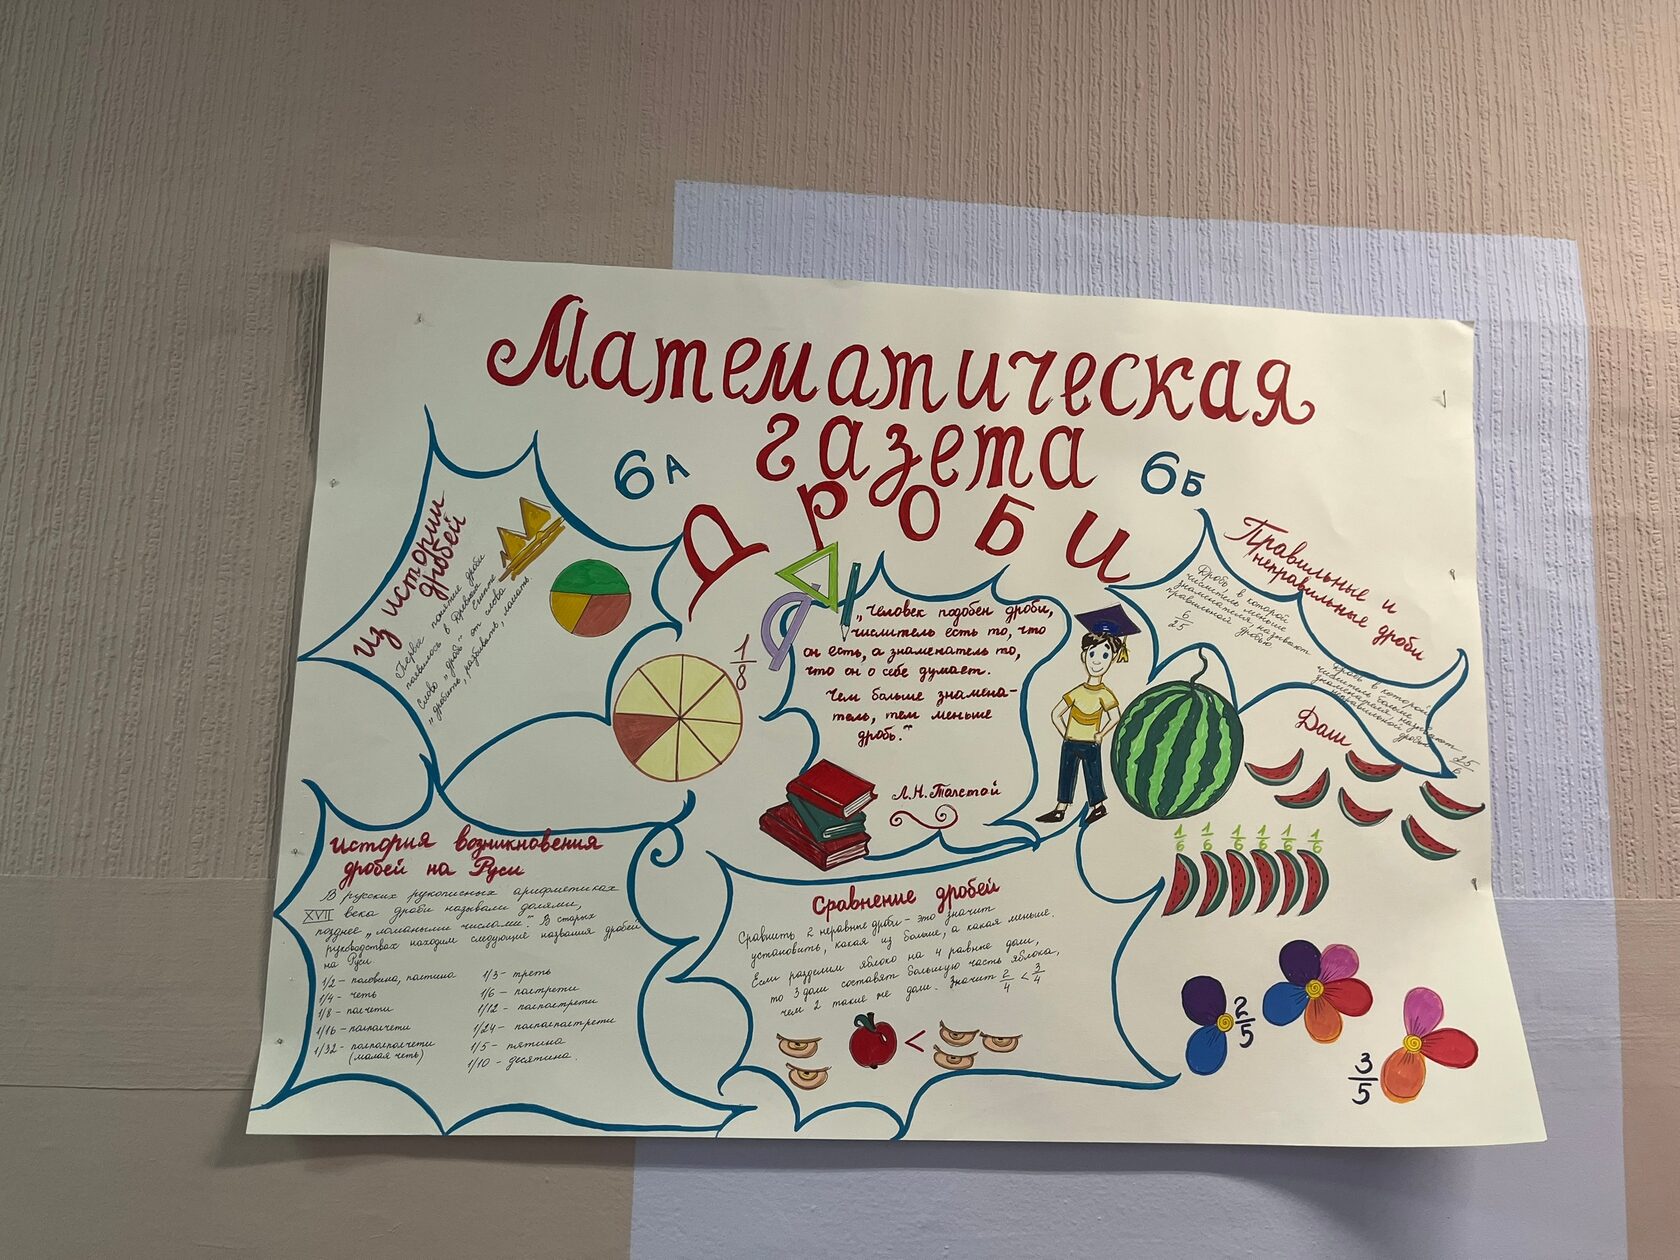 Математическая
газета
6А
6Б
ДРОБИ
Из истории
дробей
Первое понятие дроби
появилось в Древнем Египте.
Слово „дробь" от слова
„дробить, разбивать, ломать.
1/8
„Человек подобен дроби,
числитель есть то, что
он есть, а знаменатель то,
что он о себе думает.
Чем больше знамена-
тель, тем меньше
дробь."
Л.Н.Толстой
Правильные и
неправильные дроби
Дробь в которой
числитель меньше
знаменателя, называют
правильной дробью
6/25
Дробь в которой
числитель больше
знаменателя, называют
неправильной дробью
25/6
Даш
1/6 1/6 1/6 1/6 1/6 1/6
История возникновения
дробей на Руси
В русских рукописных арифметиках
XVII века дроби называли долями,
позднее „ломаными числами". В старых
руководствах находим следующие названия дробей
на Руси.
1/2 - половина, полтина
1/4 - четь
1/8 - полчети
1/16 - полполчети
1/32 - полполполчети
(малая четь)
1/3 - треть
1/6 - полтрети
1/12 - полполтрети
1/24 - полполполтрети
1/5 - пятина
1/10 - десятина.
Сравнение дробей
Сравнить 2 неравные дроби - это значит
установить, какая из больше, а какая меньше.
Если разделим яблоко на 4 равные доли,
то 3 доли составят большую часть яблока,
чем 2 такие же доли. Значит 2/4 < 3/4
<
2/5
3/5